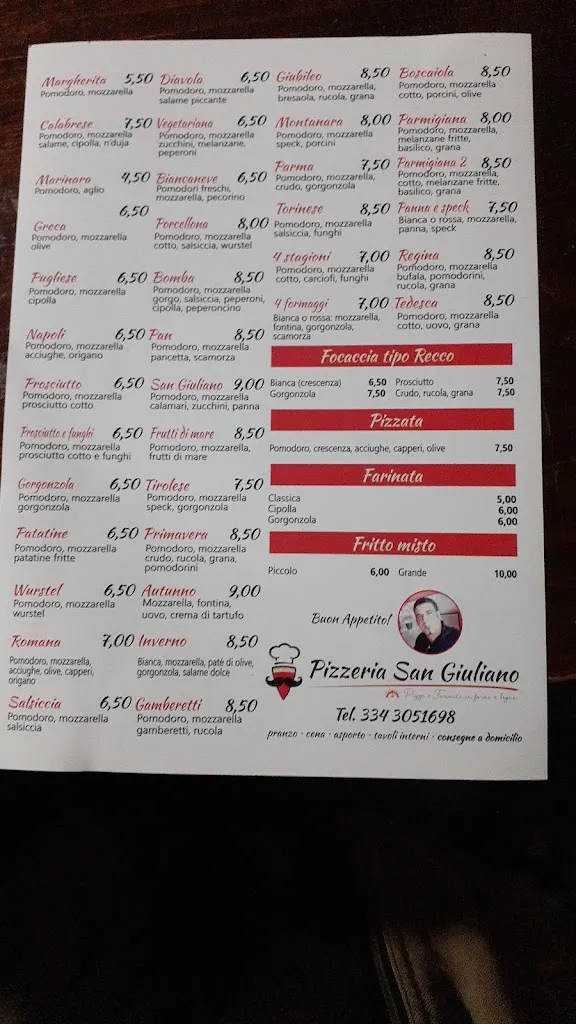 Margherita 5,50
Pomodoro, mozzarella
Calabrese 7,50
Pomodoro, mozzarella
salame, cipolla, n'duja
Marinara 4,50
Pomodoro, aglio
6,50
Greca
Pomodoro, mozzarella
olive
Pugliese 6,50
Pomodoro, mozzarella
cipolla
Napoli 6,50
Pomodoro, mozzarella
acciughe, origano
Prosciutto 6,50
Pomodoro, mozzarella
prosciutto cotto
Prosciutto e funghi 6,50
Pomodoro, mozzarella
prosciutto cotto e funghi
Gorgonzola 6,50
Pomodoro, mozzarella
gorgonzola
Patatine 6,50
Pomodoro, mozzarella
patatine fritte
Wurstel 6,50
Pomodoro, mozzarella
wurstel
Romana 7,00
Pomodoro, mozzarella,
acciughe, olive, capperi,
origano
Salsiccia 6,50
Pomodoro, mozzarella
salsiccia
Diavola 6,50
Pomodoro, mozzarella
salame piccante
Vegetariana 6,50
Pomodoro, mozzarella
zucchini, melanzane,
peperoni
Biancaneve 6,50
Pomodori freschi,
mozzarella, pecorino
Porcellona 8,00
Pomodoro, mozzarella
cotto, salsiccia, wurstel
Bomba 8,50
Pomodoro, mozzarella
gorgo, salsiccia, peperoni,
cipolla, peperoncino
Pan 8,50
Pomodoro, mozzarella
pancetta, scamorza
San Giuliano 9,00
Pomodoro, mozzarella
calamari, zucchini, panna
Frutti di mare 8,50
Pomodoro, mozzarella,
frutti di mare
Tirolese 7,50
Pomodoro, mozzarella
speck, gorgonzola
Primavera 8,50
Pomodoro, mozzarella
crudo, rucola, grana,
pomodorini
Autunno 9,00
Mozzarella, fontina,
uovo, crema di tartufo
Inverno 8,50
Bianca, mozzarella, paté di olive,
gorgonzola, salame dolce
Gamberetti 8,50
Pomodoro, mozzarella
gamberetti, rucola
Giubileo 8,50
Pomodoro, mozzarella,
bresaola, rucola, grana
Montanara 8,00
Pomodoro, mozzarella
speck, porcini
Parma 7,50
Pomodoro, mozzarella,
crudo, gorgonzola
Torinese 8,50
Pomodoro, mozzarella
salsiccia, funghi
4 stagioni 7,00
Pomodoro, mozzarella
cotto, carciofi, funghi
4 formaggi 7,00
Bianca o rossa: mozzarella,
fontina, gorgonzola,
scamorza
Boscaiola 8,50
Pomodoro, mozzarella
cotto, porcini, olive
Parmigiana 8,00
Pomodoro, mozzarella,
melanzane fritte,
basilico, grana
Parmigiana 2 8,50
Pomodoro, mozzarella,
cotto, melanzane fritte,
basilico, grana
Panna e speck 7,50
Bianca o rossa, mozzarella,
panna, speck
Regina 8,50
Pomodoro, mozzarella
bufala, pomodorini,
rucola, grana
Tedesca 8,50
Pomodoro, mozzarella
cotto, uovo, grana
Focaccia tipo Recco
Bianca (crescenza) 6,50 Prosciutto 7,50
Gorgonzola 7,50 Crudo, rucola, grana 7,50
Pizzata
Pomodoro, crescenza, acciughe, capperi, olive 7,50
Farinata
Classica 5,00
Cipolla 6,00
Gorgonzola 6,00
Fritto misto
Piccolo 6,00 Grande 10,00
Buon Appetito!
Pizzeria San Giuliano
Pizza e Farinata in forno a legna
Tel. 334 3051698
pranzo · cena · asporto · tavoli interni · consegne a domicilio